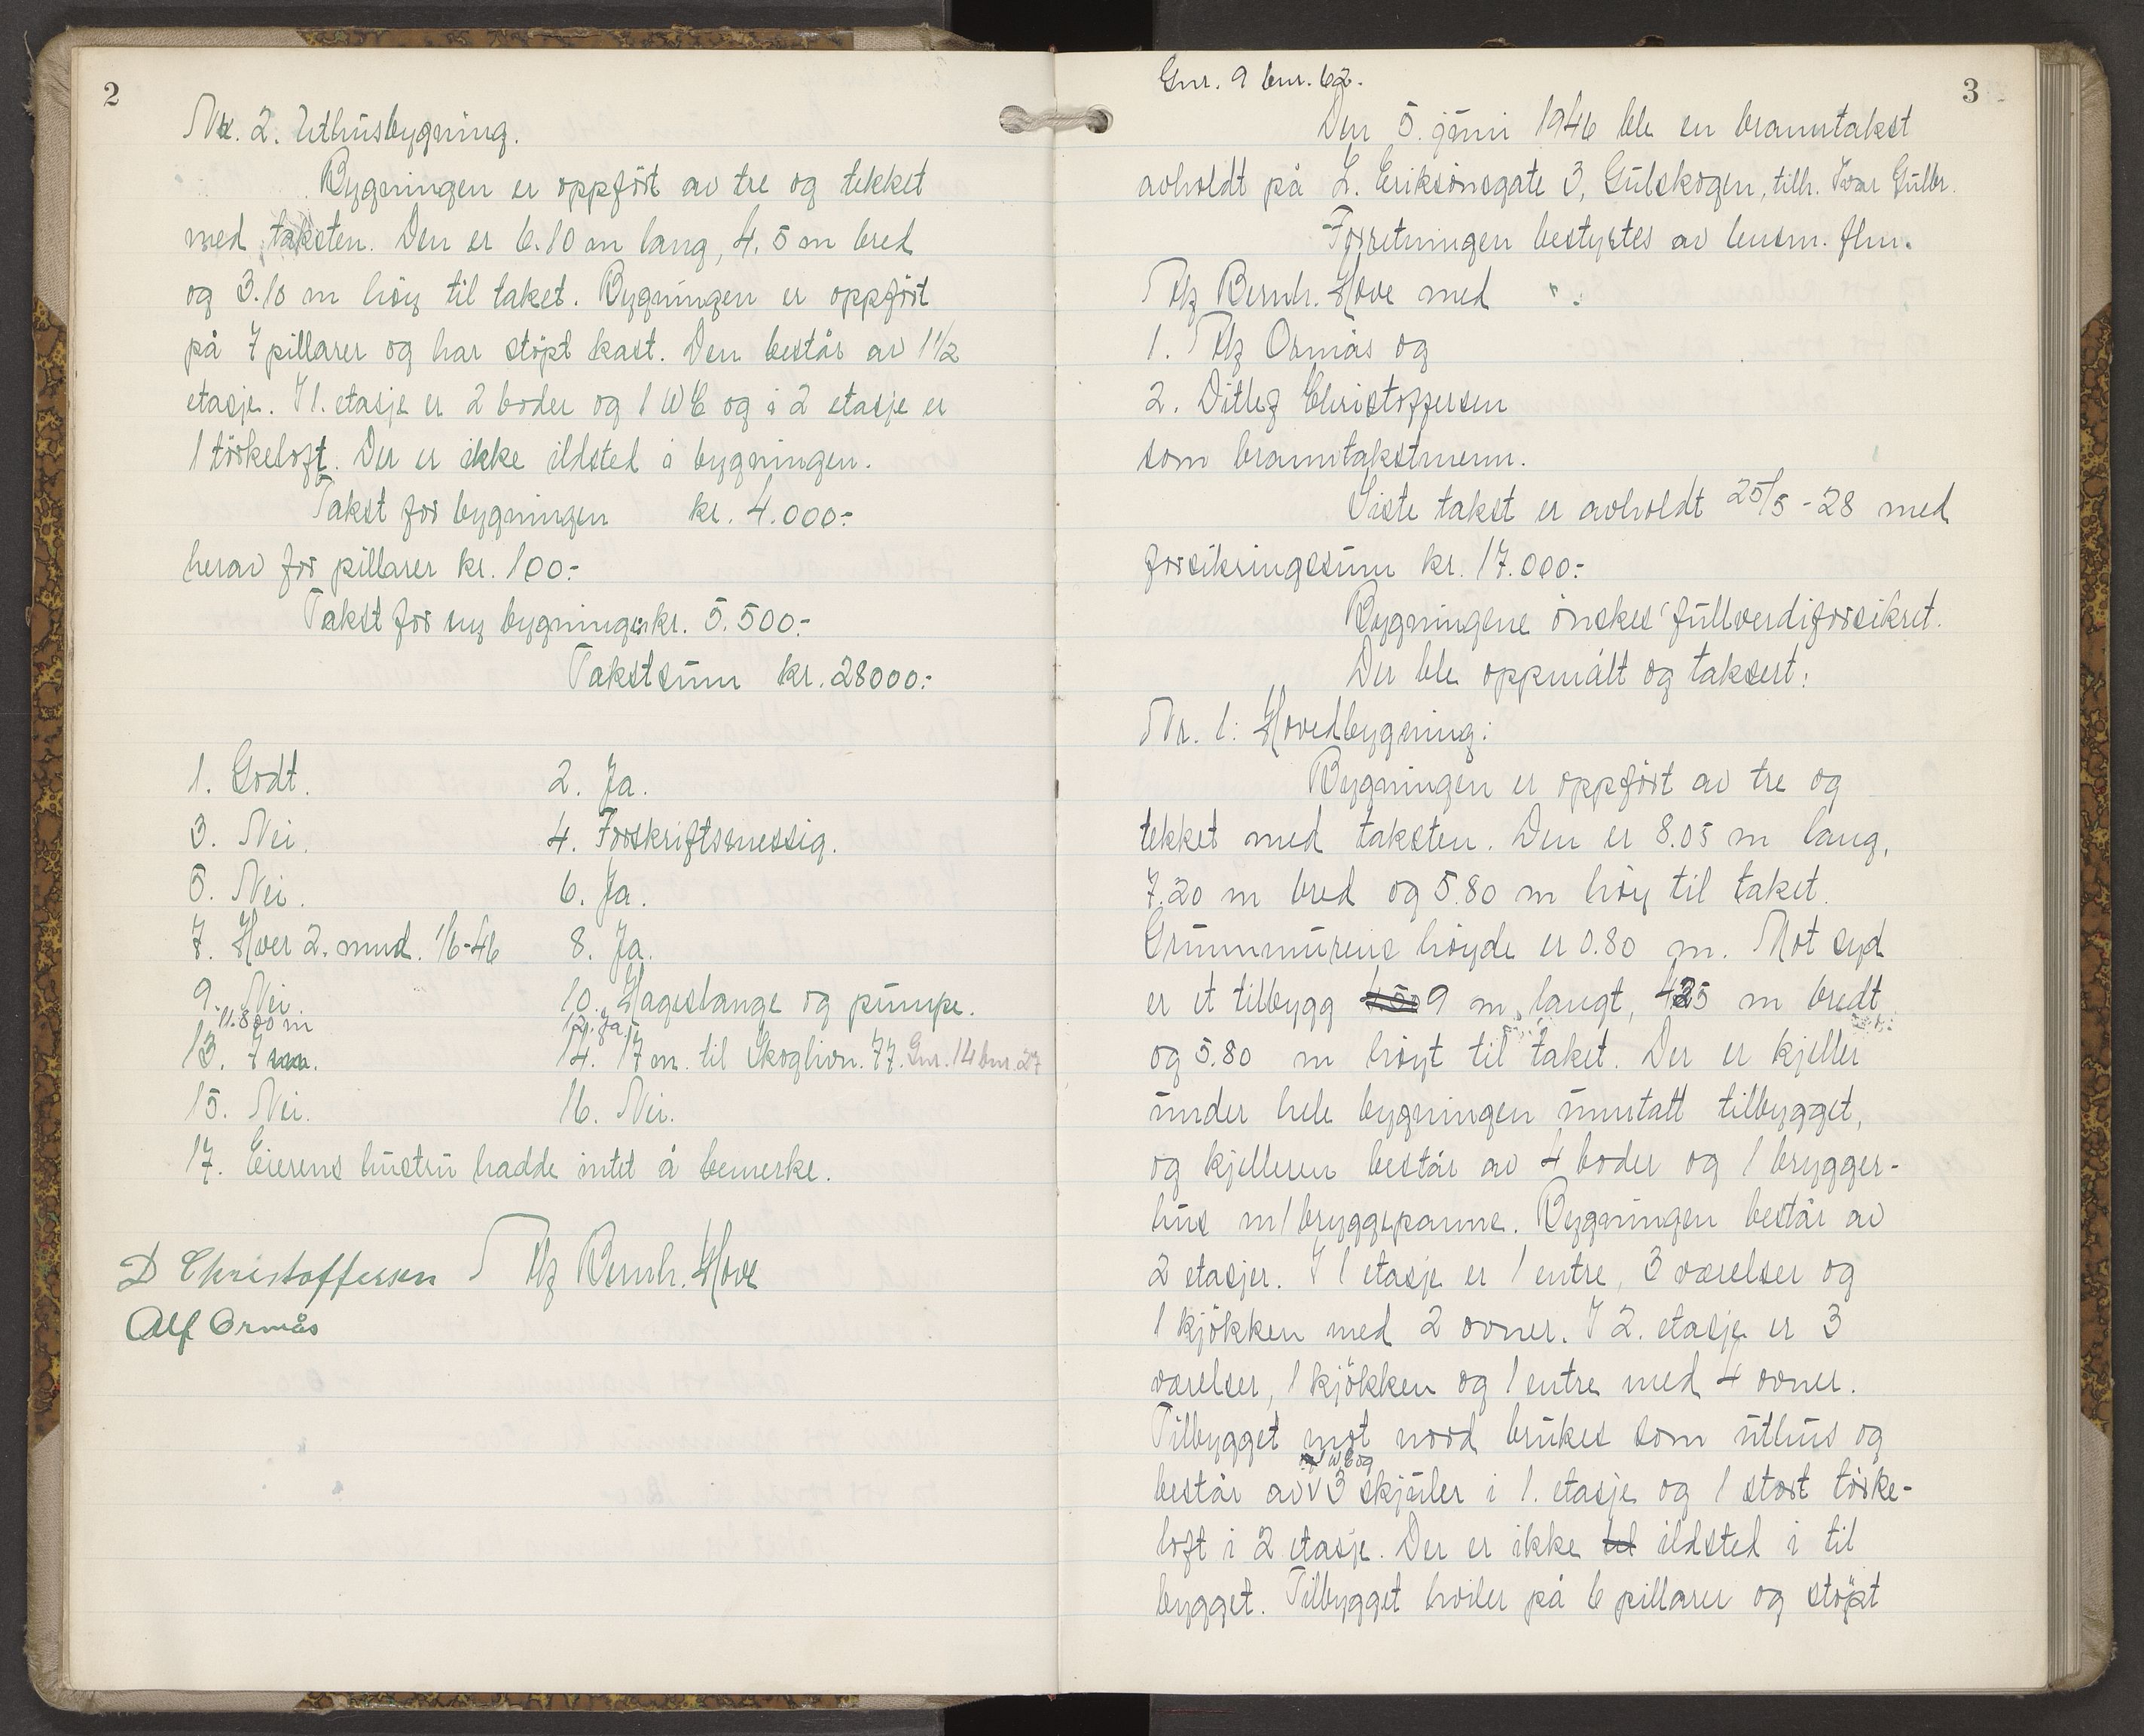 2
Nr. 2. Uthusbygning.
Bygningen er oppført av tre og tekket
med taksten. Den er 6.10 m lang, 4.5 m bred
og 3.10 m høy til taket. Bygningen er oppført
på 7 pillarer og har støpt kast. Den består av 1 1/2
etasje. I 1. etasje er 2 boder og 1 WC og i 2 etasje er
1 tørkeloft. Der er ikke ildsted i bygningen.
Takst for bygningen kr. 4.000:-
herav for pillarer kr. 100:-
Takst for ny bygning kr. 5.500:-
Takstsum kr. 28000:-
1. Godt. 2. Ja.
3. Nei. 4. Forskriftsmessig.
5. Nei. 6. Ja.
7. Hver 2. mnd. 1/6-46 8. Ja.
9. Nei. 10. Hageslange og pumpe.
11. 800 m 12. Ja
13. 7 mm. 14. 17 m. til Skoglivn. 77. Gnr. 14 bnr. 27
15. Nei. 16. Nei.
17. Eierens hustru hadde intet å bemerke.
D Christoffersen Alf Bernh. Hove
Alf Ormås
3
Gnr. 9 bnr. 62.
Den 5. juni 1946 ble en branntakst
avholdt på L. Eriksonsgate 3, Gulskogen, tilh. Ivar Gullbr.
Forretningen bestyrtes av lensm. flm.
Alf Bernh. Hove med
1. Alf Ormås og
2. Ditlef Christoffersen
som branntakstmenn.
Siste takst er avholdt 25/5-28 med
forsikringssum kr. 17.000:-
Bygningene ønskes fullverdiforsikret.
Der ble oppmålt og taksert:
Nr. 1: Hovedbygning:
Bygningen er oppført av tre og
tekket med taksten. Den er 8.05 m lang,
7.20 m bred og 5.80 m høy til taket.
Grunnmurens høyde er 0.80 m. Mot syd
er et tilbygg 9 m langt, 4.25 m bredt
og 5.80 m høyt til taket. Der er kjeller
under hele bygningen unntatt tilbygget,
og kjelleren består av 4 boder og 1 brygger-
hus m/bryggepanne. Bygningen består av
2 etasjer. I 1 etasje er 1 entre, 3 værelser og
1 kjøkken med 2 ovner. I 2. etasje er 3
værelser, 1 kjøkken og 1 entre med 4 ovner.
Tilbygget mot nord brukes som uthus og
1 WC og
består av 3 skjuler i 1. etasje og 1 stort tørke-
loft i 2 etasje. Der er ikke til ildsted i til
bygget. Tilbygget hviler på 6 pillarer og støpt